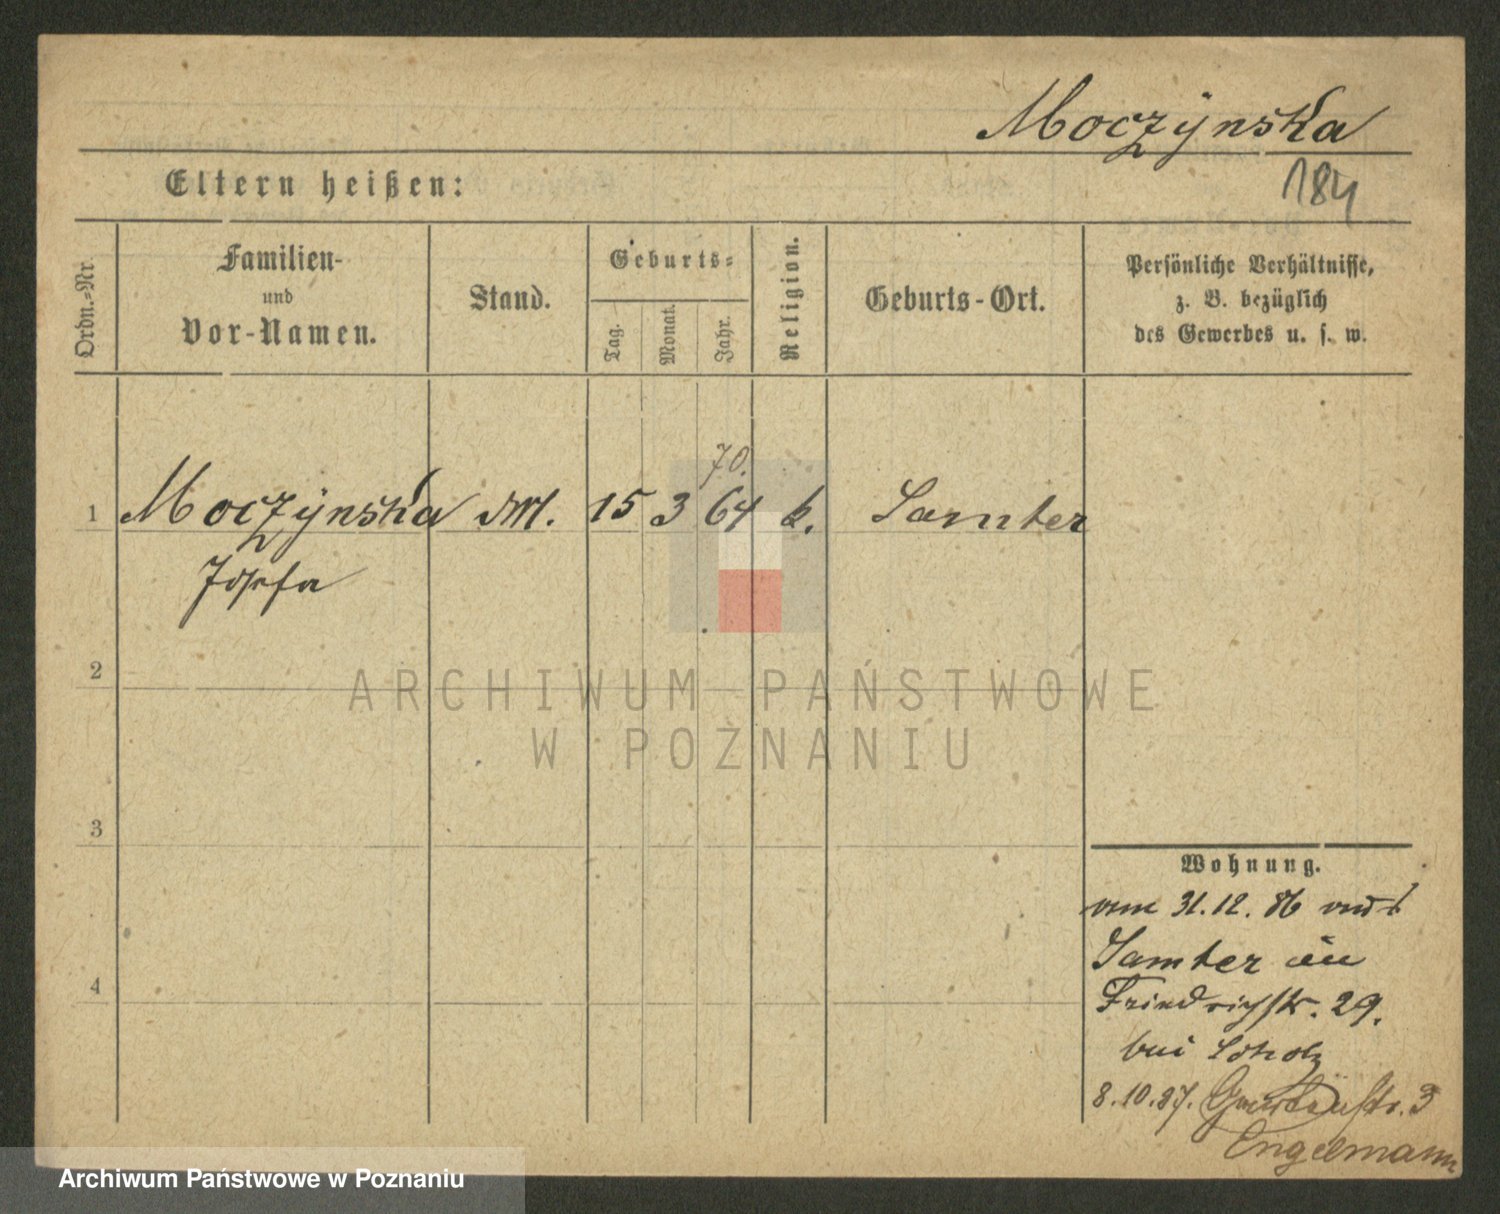 Moczÿnska
184
Eltern heißen:
Ordn.-Nr.
Familien-
und
Vor-Namen.
Stand.
Geburts-
Tag.
Monat.
Jahr.
Religion.
Geburts-Ort.
Persönliche Verhältnisse,
z. B. bezüglich
des Gewerbes u. s. w.
70.
1 Moczÿnska 15 3 64 k. Samter
Josefa
2
ARCHIWUM PAŃSTWOWE
W POZNANIU
3
Wohnung.
vom 31.12.86
Samter in
Friedrichstr. 29.
bei
4
8.10.87. Gartenstr. 3
Engelmann
Archiwum Państwowe w Poznaniu